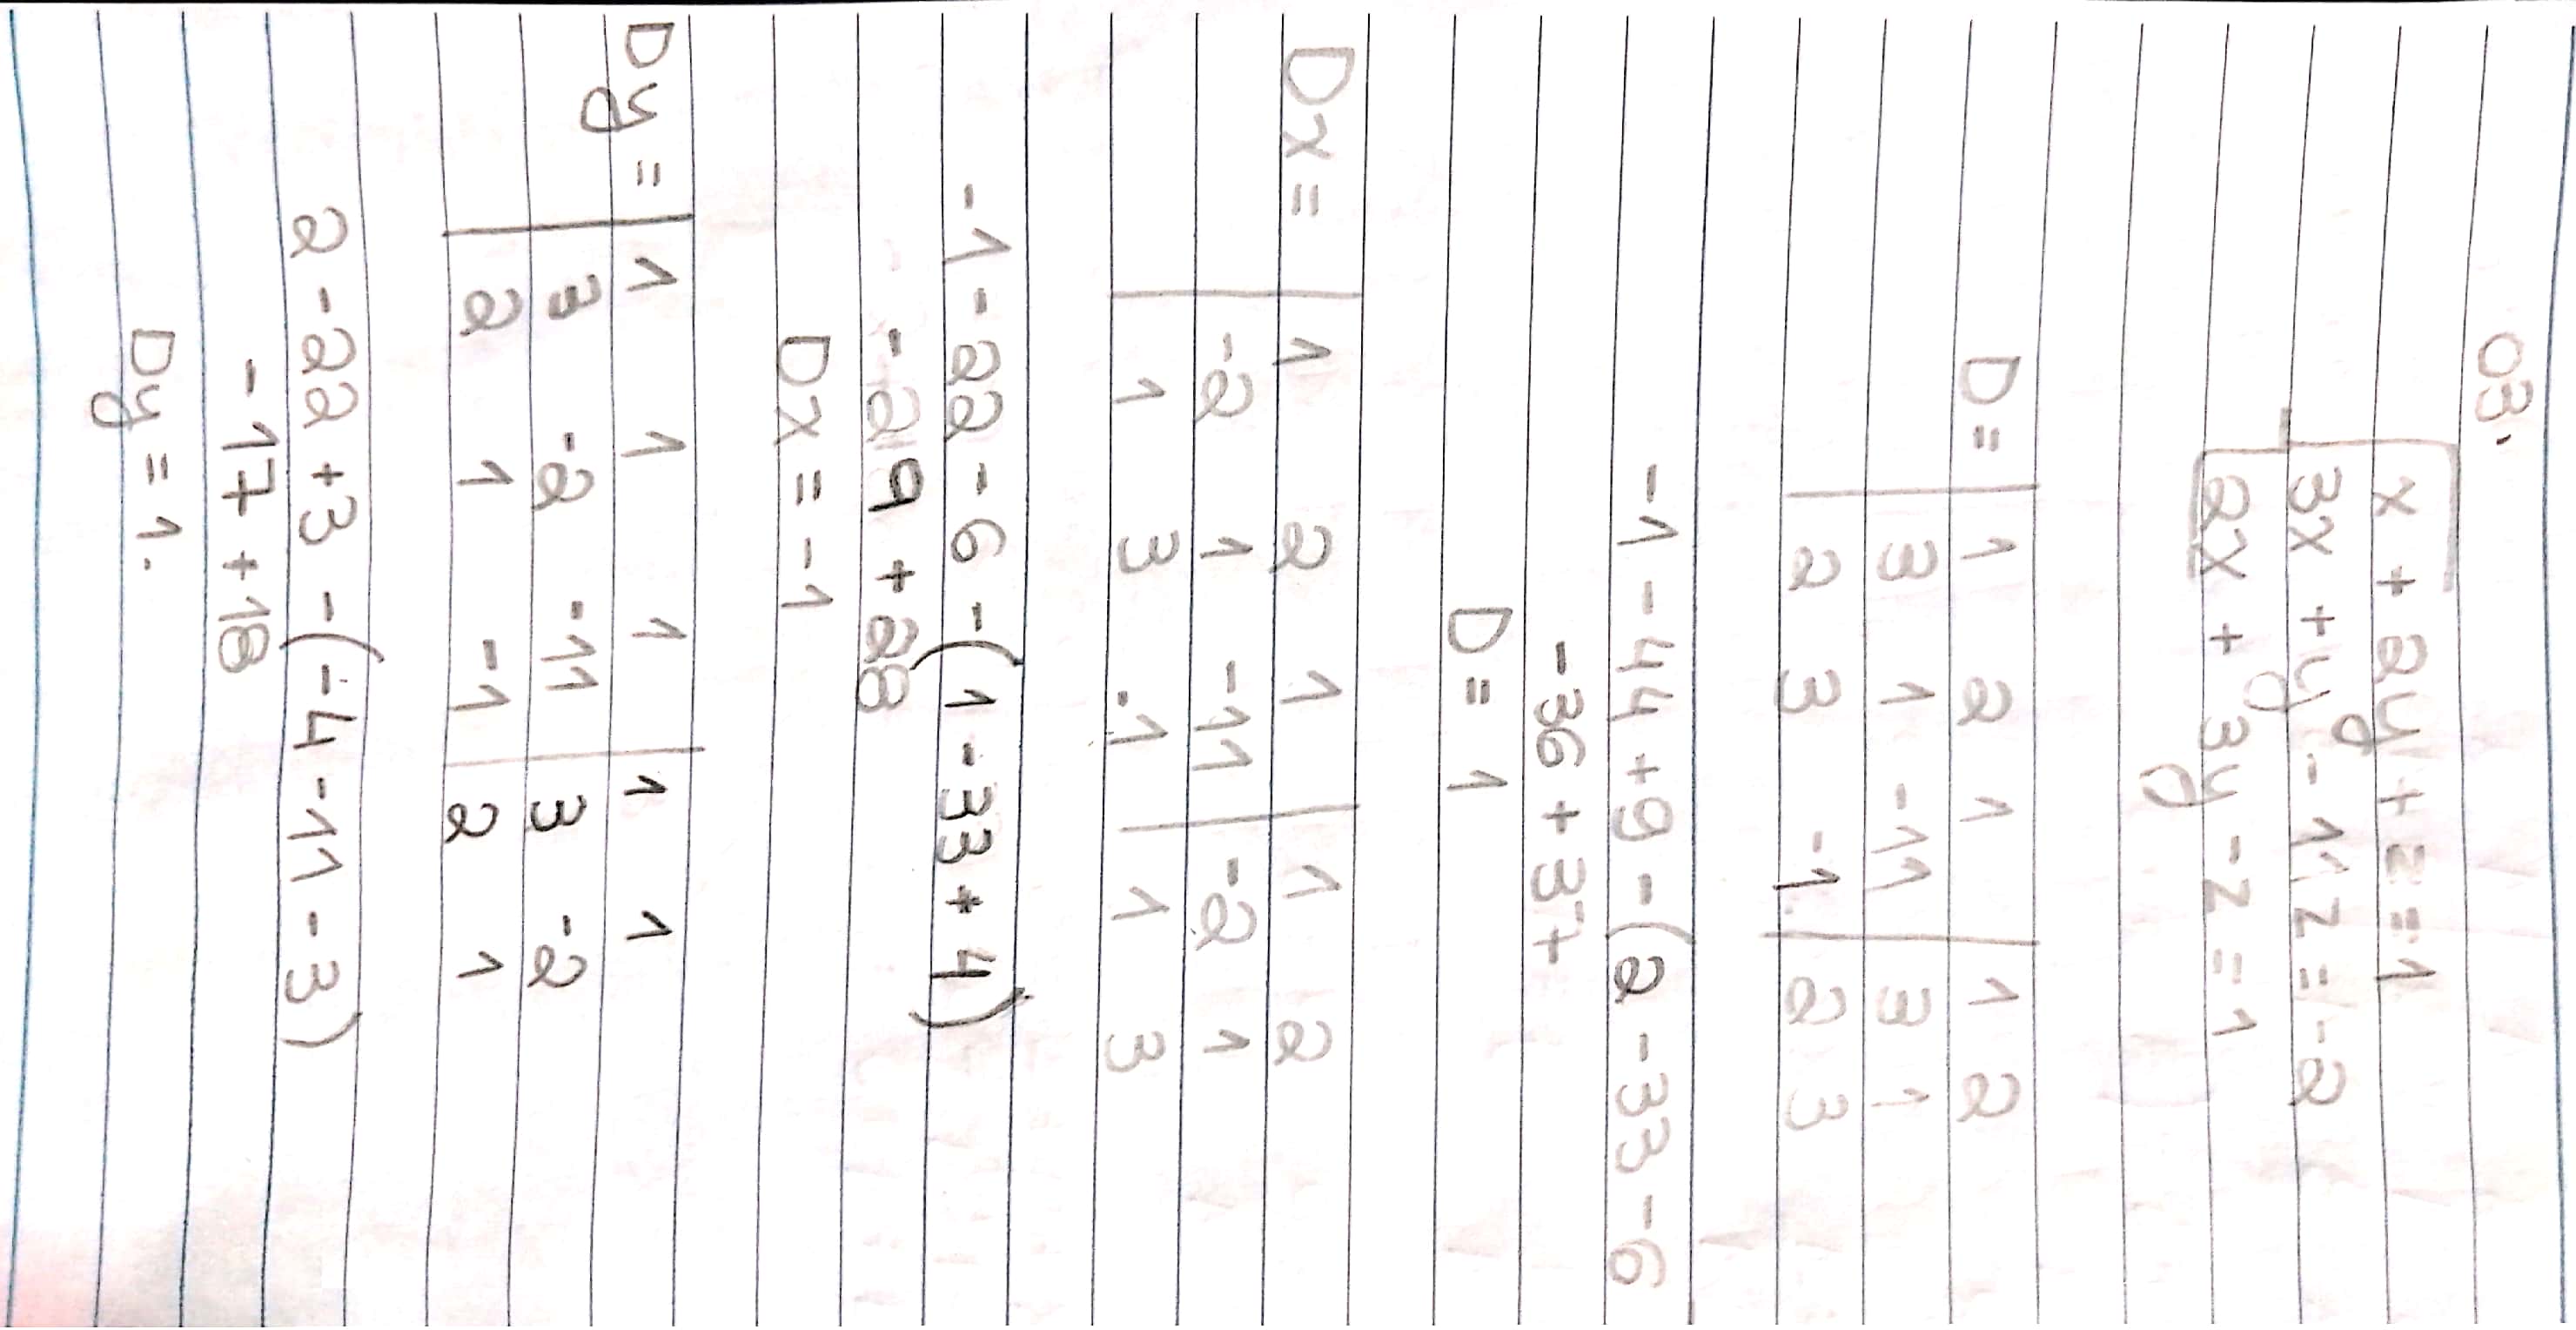 03.
x + 2y + z = 1
3x + y - 11z = -2
2x + 3y - z = 1
D = | 1 2 1 | 1 2
3 1 -11 | 3 1
2 3 -1 | 2 3
-1 - 44 + 9 - (2 - 33 - 6
-36 + 37+
D = 1
Dx = | 1 2 1 | 1 2
-2 1 -11 | -2 1
1 3 -1 | 1 3
-1 - 22 - 6 - (1 - 33 + 4)
-29 + 28
Dx = -1
Dy = | 1 1 1 | 1 1
3 -2 -11 | 3 -2
2 1 -1 | 2 1
2 - 22 + 3 - (-4 - 11 - 3)
-17 + 18
Dy = 1.